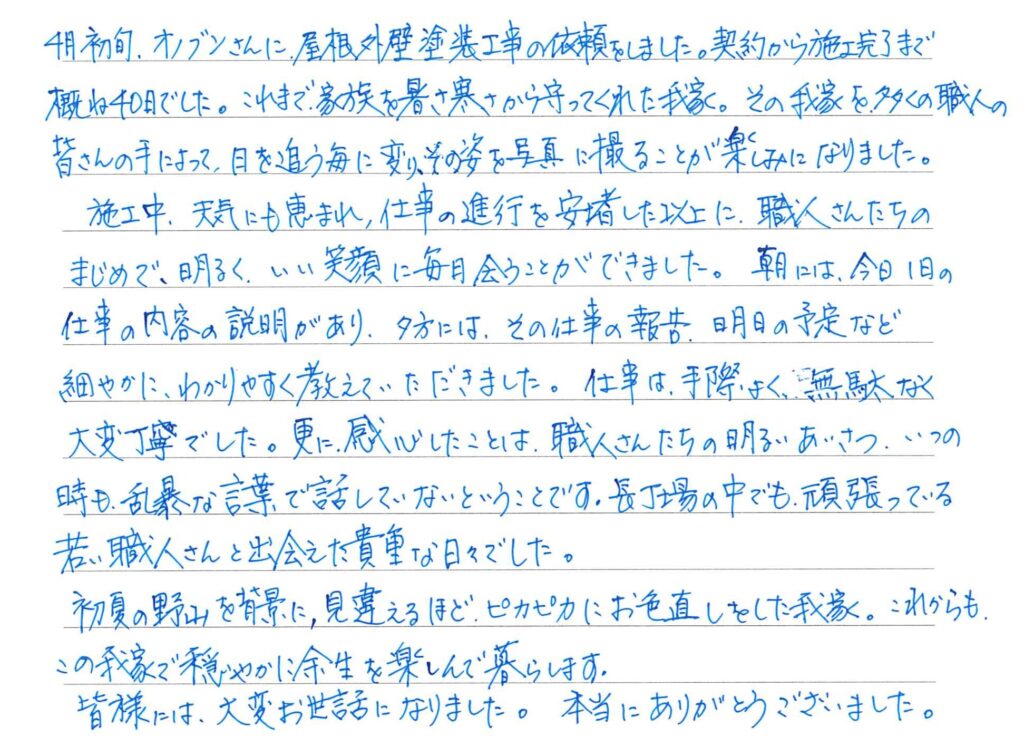 4月初旬、オノブンさんに、屋根外壁塗装工事の依頼をしました。契約から施工完了まで
概ね40日でした。これまで、家族を暑さ寒さから守ってくれた我家。その我家を、多くの職人の
皆さんの手によって、日を追う毎に変り、その姿を写真に撮ることが楽しみになりました。
施工中、天気にも恵まれ、仕事の進行を安堵した以上に、職人さんたちの
まじめで、明るく、いい笑顔に毎日会うことができました。朝には、今日1日の
仕事の内容の説明があり、夕方には、その仕事の報告、明日の予定など
細やかに、わかりやすく教えていただきました。仕事は、手際よく、無駄なく
大変丁寧でした。更に、感心したことは、職人さんたちの明るいあいさつ、いつの
時も、乱暴な言葉で話していないということです。長丁場の中でも、頑張っている
若い職人さんと出会えた貴重な日々でした。
初夏の野山を背景に、見違えるほど、ピカピカにお色直しをした我家。これからも、
この我家で穏やかに余生を楽しんで暮らします。
皆様には、大変お世話になりました。本当にありがとうございました。